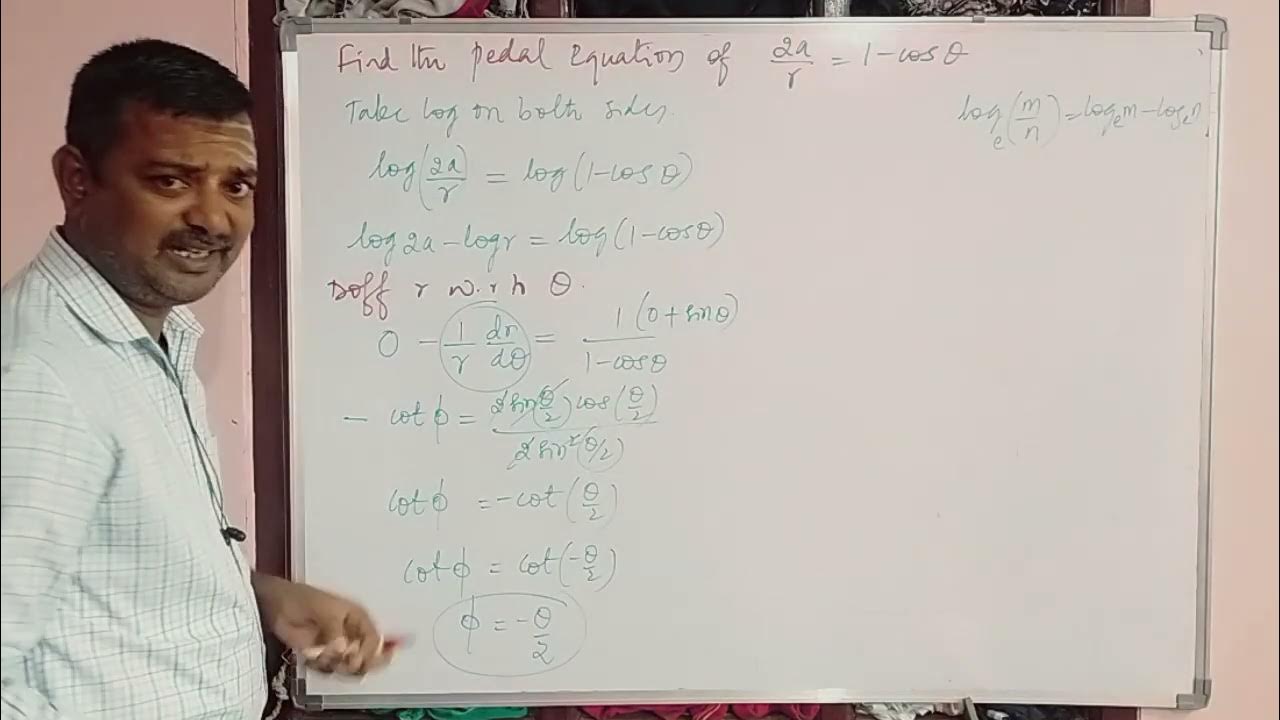 Find the pedal equation of 2a/r = 1-cosθ
Take log on both sides.
log_e(m/n) = log_e m - log_e n
log(2a/r) = log(1-cosθ)
log2a - logr = log(1-cosθ)
Diff r w.r.h θ.
0 - 1/r dr/dθ = 1(0+sinθ)/1-cosθ
- cotϕ = 2sin(θ/2)cos(θ/2)/2sin²(θ/2)
cotϕ = -cot(θ/2)
cotϕ = cot(-θ/2)
ϕ = -θ/2